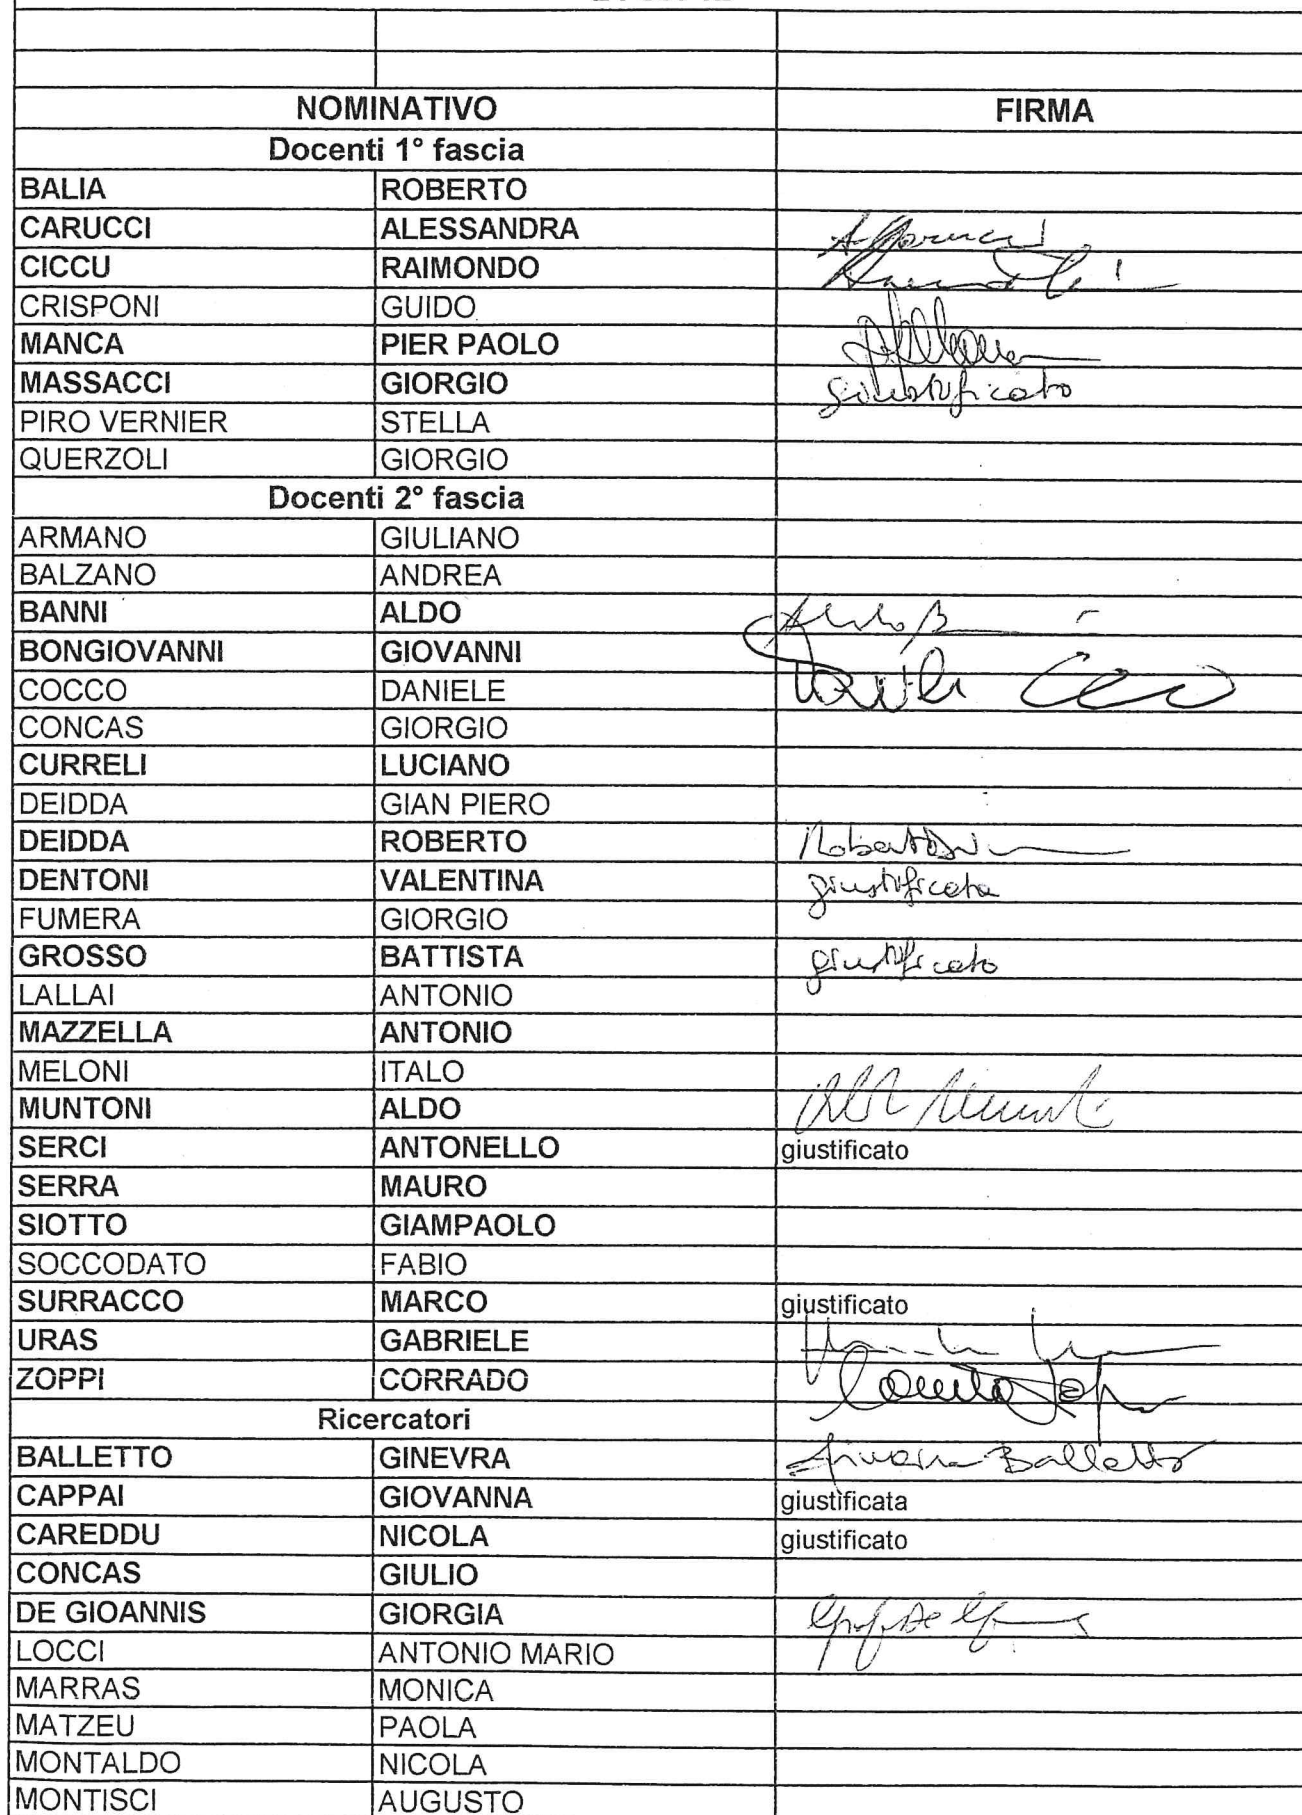 NOMINATIVO FIRMA
Docenti 1° fascia
BALIA ROBERTO
CARUCCI ALESSANDRA
CICCU RAIMONDO
CRISPONI GUIDO
MANCA PIER PAOLO
MASSACCI GIORGIO giustificato
PIRO VERNIER STELLA
QUERZOLI GIORGIO
Docenti 2° fascia
ARMANO GIULIANO
BALZANO ANDREA
BANNI ALDO
BONGIOVANNI GIOVANNI
COCCO DANIELE
CONCAS GIORGIO
CURRELI LUCIANO
DEIDDA GIAN PIERO
DEIDDA ROBERTO
DENTONI VALENTINA giustificata
FUMERA GIORGIO
GROSSO BATTISTA giustificato
LALLAI ANTONIO
MAZZELLA ANTONIO
MELONI ITALO
MUNTONI ALDO
SERCI ANTONELLO giustificato
SERRA MAURO
SIOTTO GIAMPAOLO
SOCCODATO FABIO
SURRACCO MARCO giustificato
URAS GABRIELE
ZOPPI CORRADO
Ricercatori
BALLETTO GINEVRA Ginevra Balletto
CAPPAI GIOVANNA giustificata
CAREDDU NICOLA giustificato
CONCAS GIULIO
DE GIOANNIS GIORGIA
LOCCI ANTONIO MARIO
MARRAS MONICA
MATZEU PAOLA
MONTALDO NICOLA
MONTISCI AUGUSTO